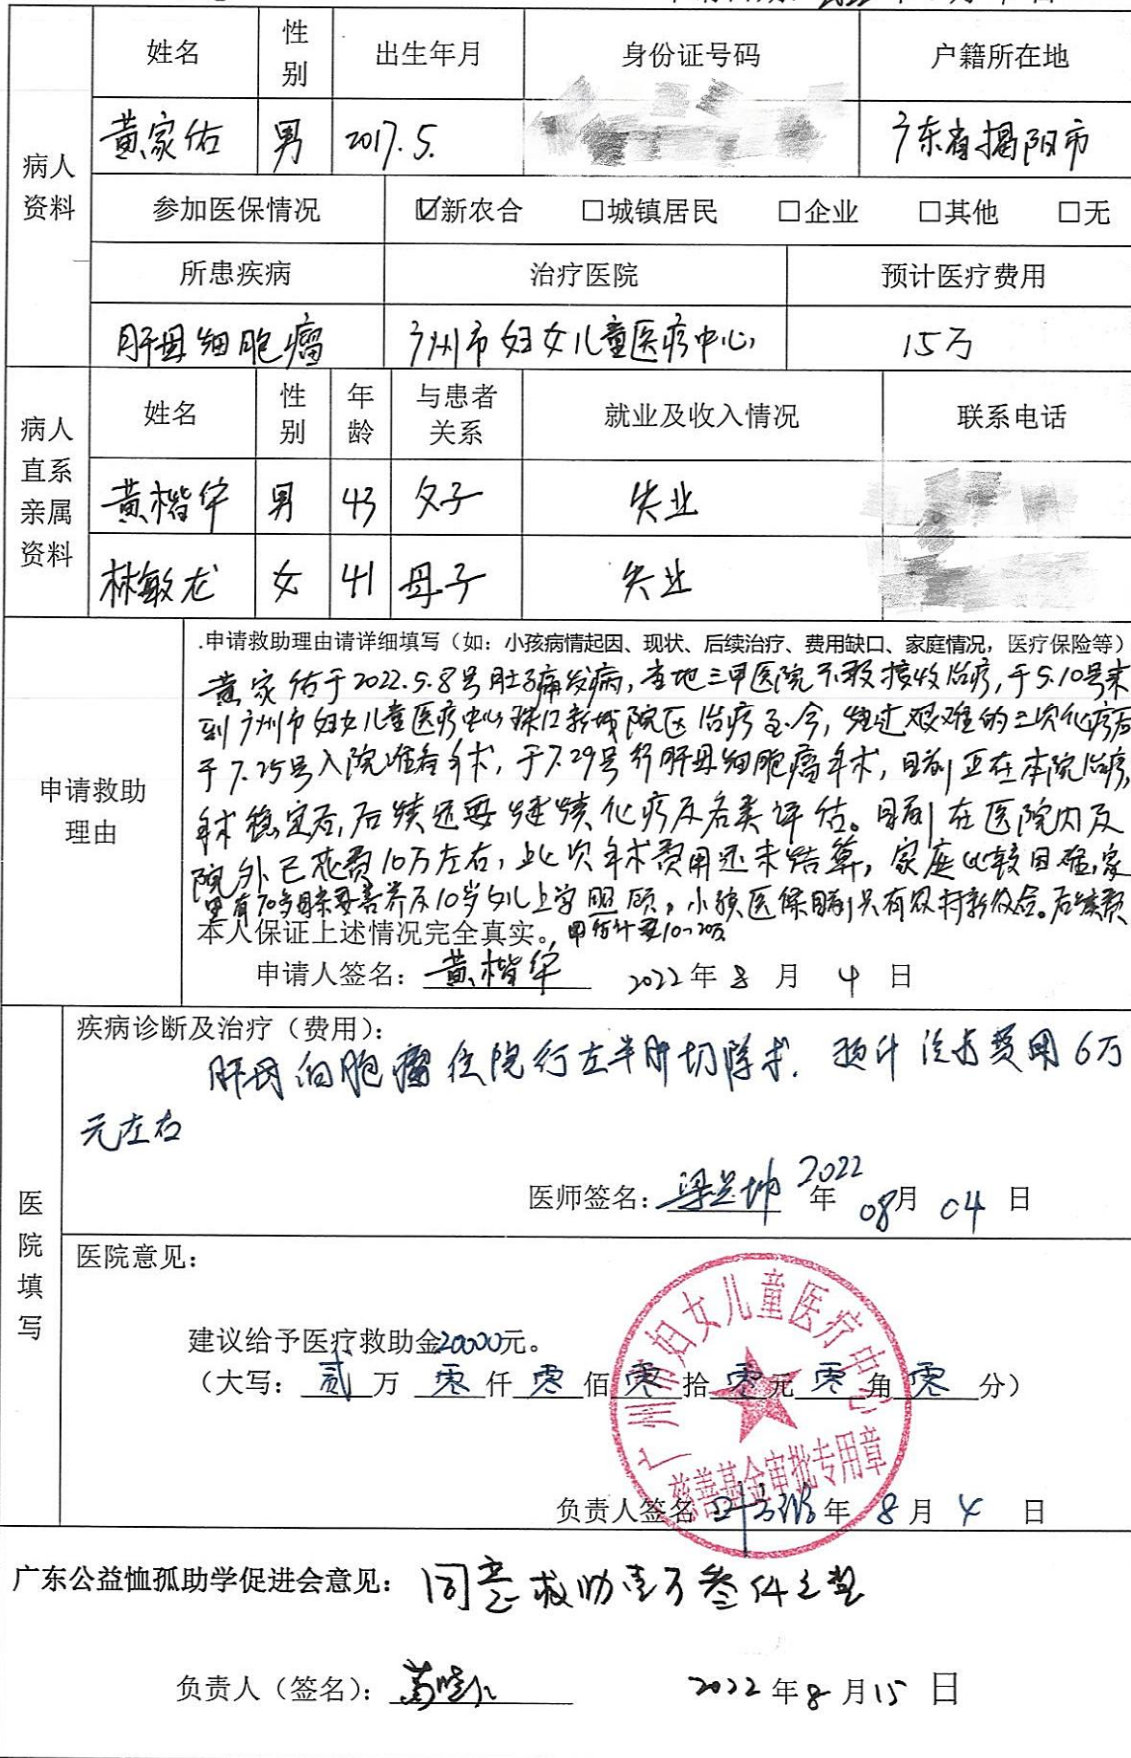 姓名 性别 出生年月 身份证号码 户籍所在地
病人资料
黄家佑 男 2017.5. 广东省揭阳市
参加医保情况 ☑新农合 □城镇居民 □企业 □其他 □无
所患疾病 治疗医院 预计医疗费用
肝母细胞瘤 广州市妇女儿童医疗中心 15万
病人直系亲属资料
姓名 性别 年龄 与患者关系 就业及收入情况 联系电话
黄楷华 男 43 父子 失业
林敏龙 女 41 母子 失业
申请救助理由
.申请救助理由请详细填写（如：小孩病情起因、现状、后续治疗、费用缺口、家庭情况，医疗保险等）
黄家佑于2022.5.8号肚子痛发病，当地三甲医院不敢接收治疗，于5.10号来
到广州市妇女儿童医疗中心珠江新城院区治疗至今，经过艰难的三次化疗后
于7.25号入院准备手术，于7.29号行肝母细胞瘤手术，目前正在本院治疗，
手术稳定后，后续还要继续化疗及各类评估。目前在医院内及
院外已花费10万左右，此次手术费用还未结算，家庭比较困难，家
里有70岁母亲要善养及10岁女儿上学照顾，小孩医保目前只有农村新农合。后续费
用估计要10-20万
本人保证上述情况完全真实。
申请人签名：黄楷华 2022年8月4日
医院填写
疾病诊断及治疗（费用）：
肝母细胞瘤住院行左半肝切除术. 预计治疗费用6万
元左右
医师签名： 2022年08月04日
医院意见：
建议给予医疗救助金20000元。
（大写：贰万零仟零佰零拾零元零角零分）
广州市妇女儿童医疗中心
慈善基金审批专用章
负责人签名 年8月4日
广东公益恤孤助学促进会意见：同意救助壹万叁仟元整
负责人（签名）： 2022年8月15日